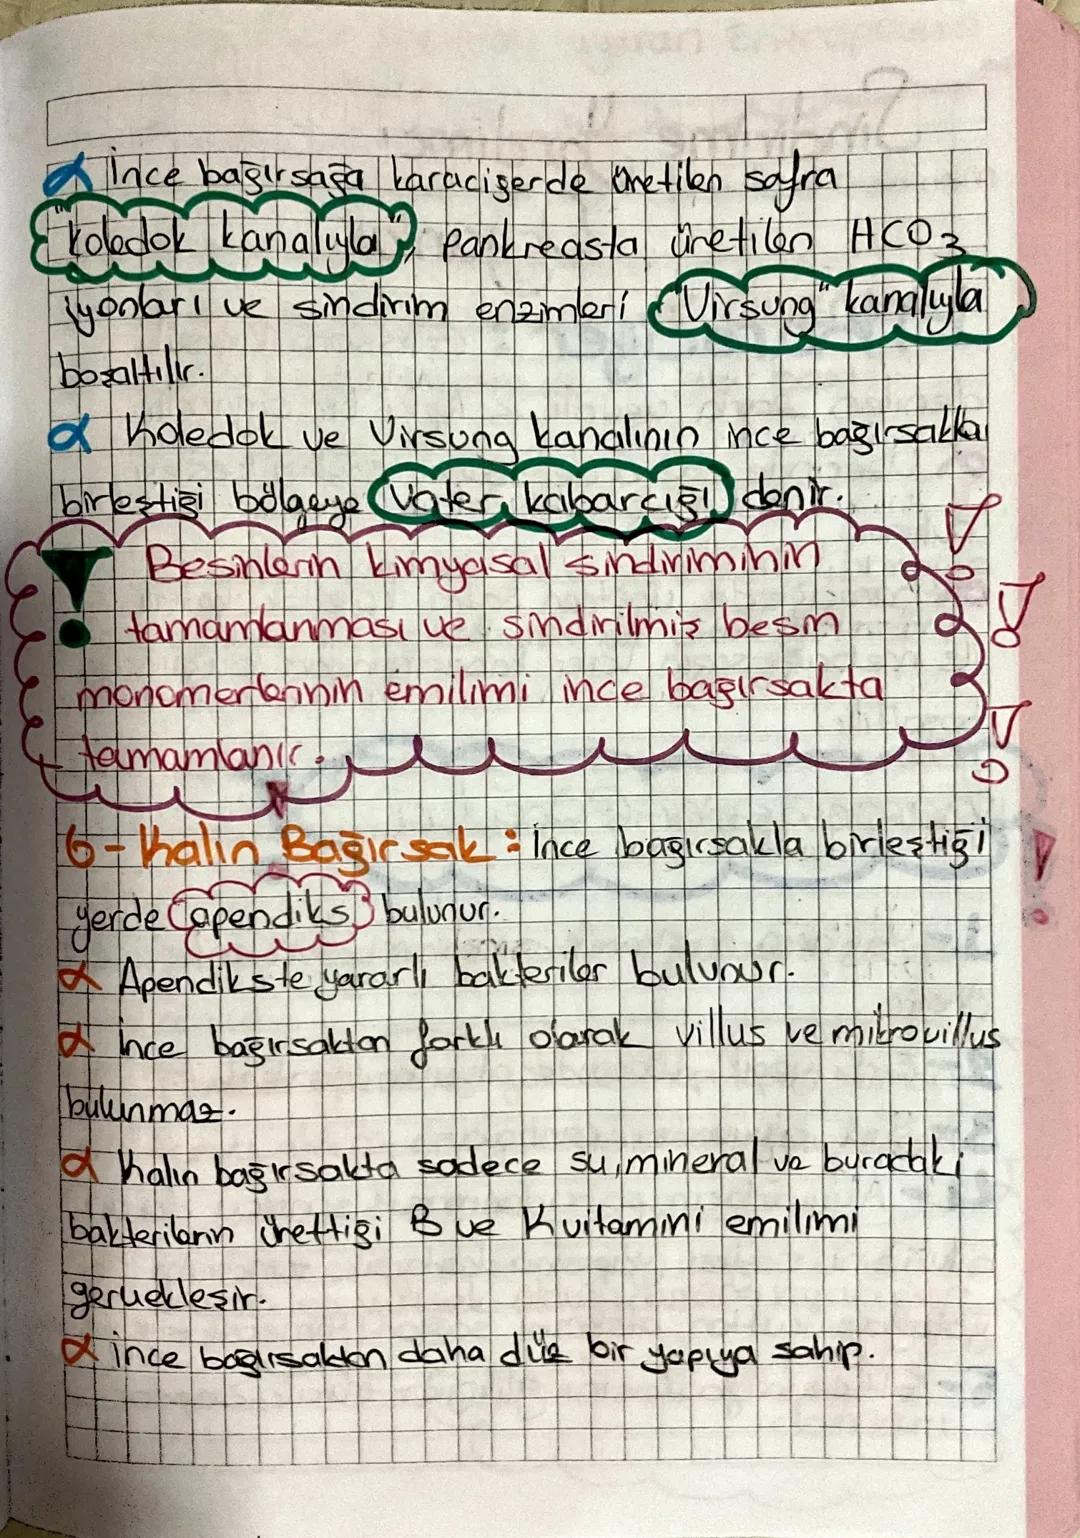 İnce bağırsağa karaciğerde üretilen safra
"koledok kanalıyla", pankreasta üretilen HCO3
iyonları ve sindirim enzimleri "Virsung" kanalıyla
boşaltılır.
Koledok ve Virsung kanalının ince bağırsakla
birleştiği bölgeye Vater kabarcığı denir.
Besinlerin kimyasal sindiriminin
tamamlanması ve sindirilmiş besin
monomerlerinin emilimi ince bağırsakta
tamamlanır.
6- Kalın Bağırsak: İnce bağırsakla birleştiği
yerde apendiks bulunur.
Apendikste yararlı bakteriler bulunur.
İnce bağırsaktan farklı olarak villus ve mikrovillus
bulunmaz.
Kalın bağırsakta sadece su, mineral ve buradaki
bakterilerin ürettiği B ve K vitamini emilimi
gerçekleşir.
İnce bağırsaktan daha düz bir yapıya sahip.